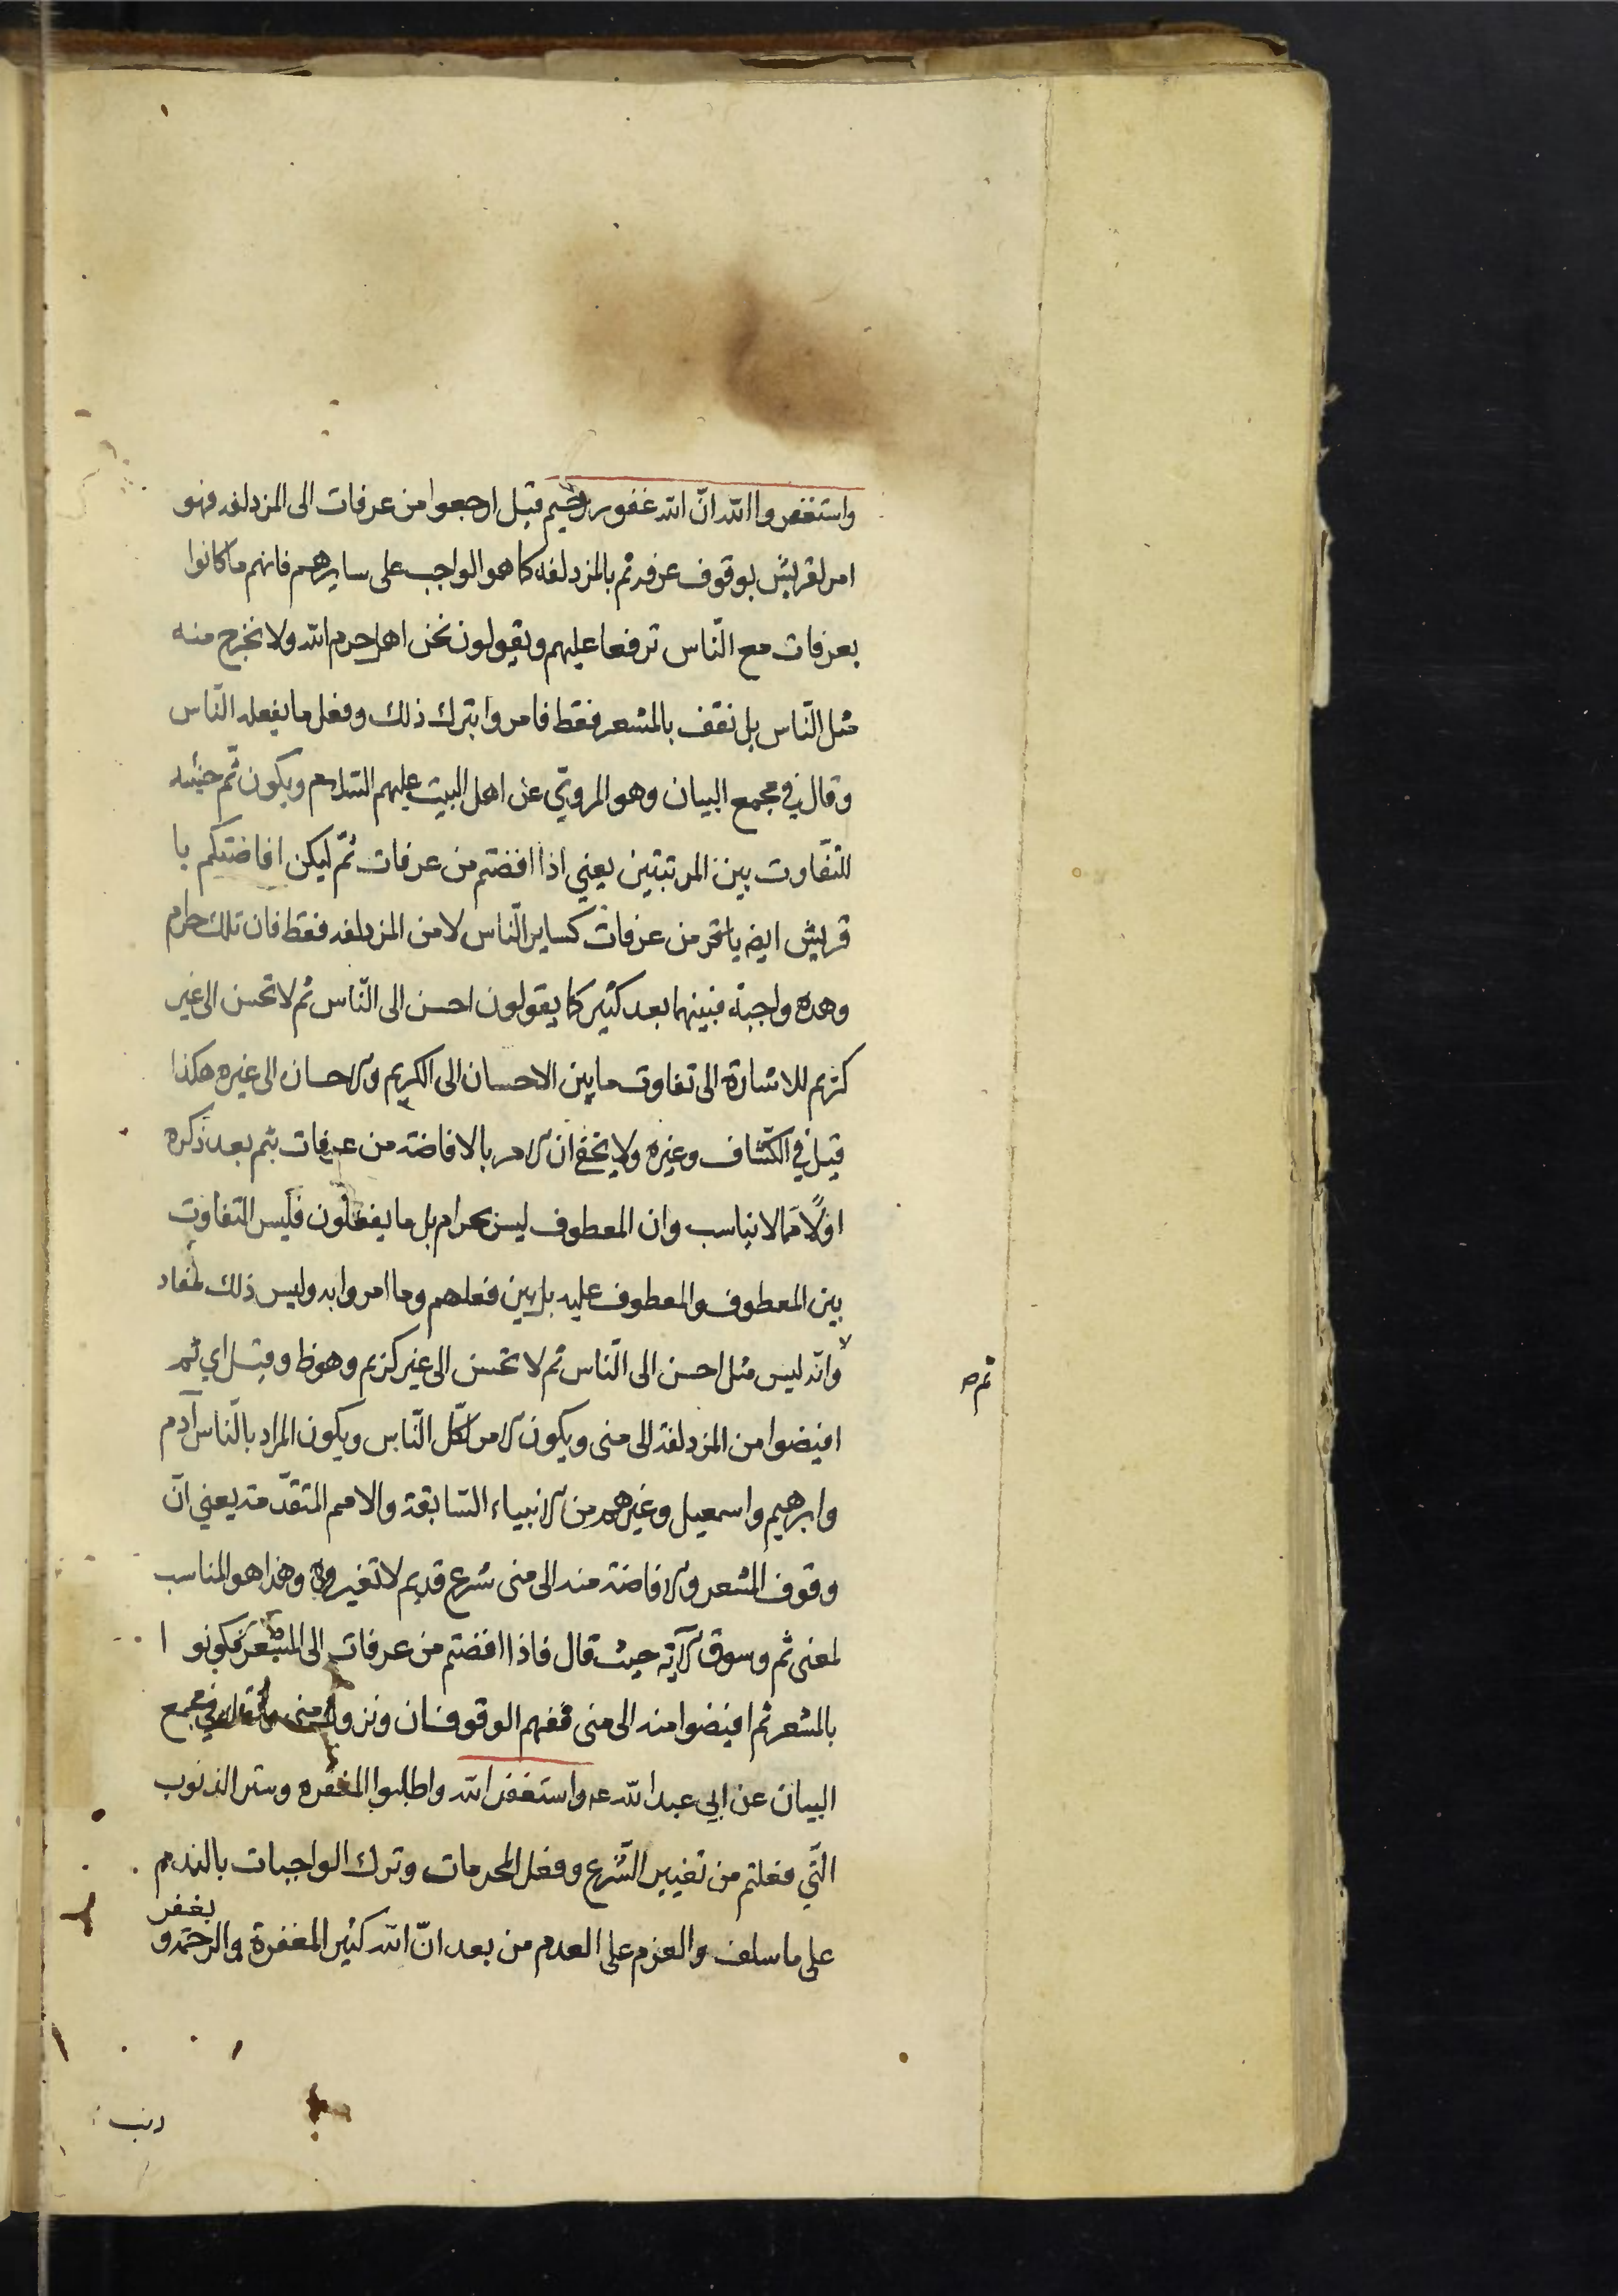 واستغفروا الله انّ الله غفور رحيم قيل ارجعوا من عرفات الى المزدلفه فهو
امر لقريش بوقوف عرفه ثم بالمزدلفه كما هو الواجب على سايرهم فانهم ما كانوا
بعرفات مع النّاس ترفعا عليهم ويقولون نحن اهل حرم الله ولا نخرج منه
مثل النّاس بل نقف بالمشعر فقط فامروا بترك ذلك وفعل ما يفعله النّاس
وقال في مجمع البيان وهو المرويّ عن اهل البيت عليهم السّلام ويكون ثمّ حينئذ
للتّفاوت بين المرتبتين يعني اذا افضتم من عرفات ثمّ ليكن افاضتكم يا
قريش ايض من عرفات كساير النّاس لا من المزدلفه فقط فان تلك حرام
وهذه واجبة فبينهما بعد كثير كما يقولون احسن الى النّاس ثم لا تحسن الى غير
كريم للاشارة الى تفاوت ما بين الاحسان الى الكريم والاحسان الى غيره هكذا
قيل في الكشّاف وغيره ولا يخفى ان الامر بالافاضة من عرفات بثم بعد ذكره
اوّلًا ممّا لا يناسب وان المعطوف ليس بحرام بل ما يفعلون فليس التفاوت
بين المعطوف والمعطوف عليه بل بين فعلهم وما امروا به وليس ذلك لمفاد
ثم صه
وانّه ليس مثل احسن الى النّاس ثم لا تحسن الى غير كريم وهو ظ وقيل اي ثم
افيضوا من المزدلفة الى منى ويكون الامر لكلّ النّاس ويكون المراد بالنّاس آدم
وابرهيم واسمعيل وغيرهم من الانبياء السّابقة والامم المتقدّمة يعني انّ
وقوف المشعر والافاضة منه الى منى شرع قديم لا تغيروه وهذا هو المناسب
لمعنى ثم وسوق الآية حيث قال فاذا افضتم من عرفات الى المشعر فكونوا
بالمشعر ثم افيضوا منه الى منى ففهم الوقوفان ونزول منى في مجمع
البيان عن ابي عبد الله عه واستغفر الله واطلبوا المغفره وستر الذنوب
الّتي فعلتم من تغيير الشّرع وفعل المحرمات وترك الواجبات بالندم
على ما سلف والعزم على العدم من بعد انّ الله كثير المغفرة والرحمة و يغفر